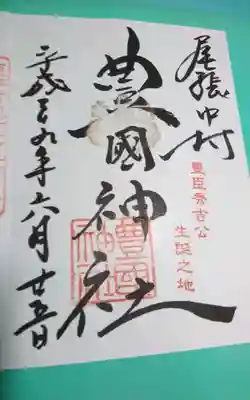 尾張中村
豊臣秀吉公
生誕之地
豊國神社
豊國
神社
平成二十九年六月廿五日